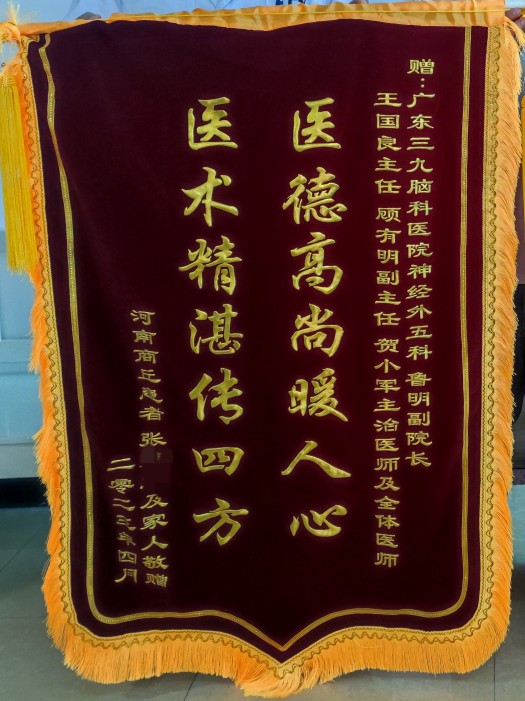 赠：广东三九脑科医院神经外五科 鲁明副院长
王国良主任 顾有明副主任 贺小军主治医师及全体医师
医德高尚暖人心
医术精湛传四方
河南商丘患者 张 及家人敬赠
二零二三年四月